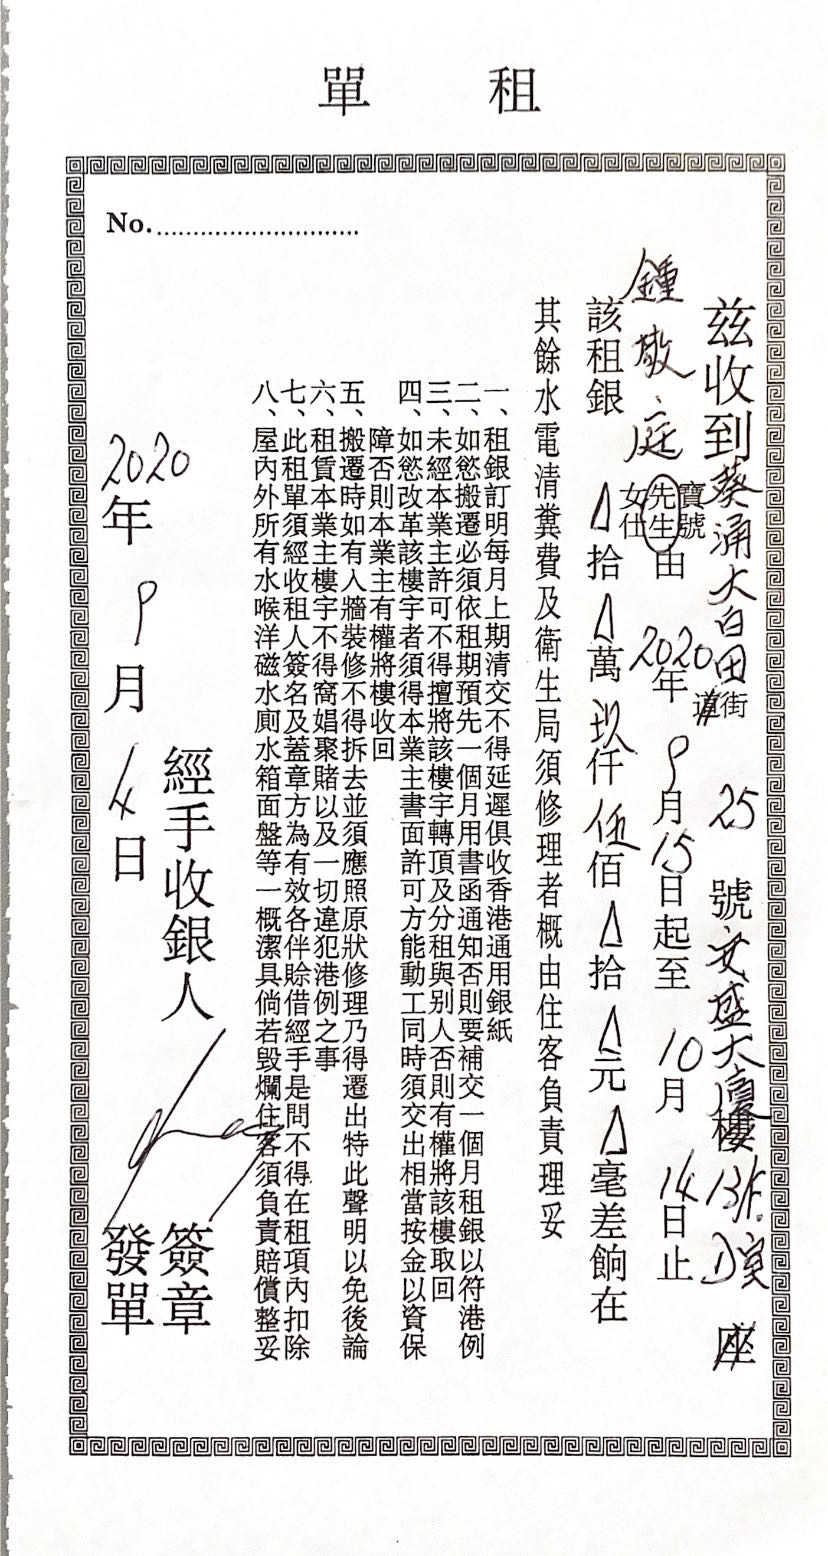 租單
No.
茲收到葵涌大白田街道25號安盛大廈樓13/F.D室座
鍾敬庭寶號先生女仕由2020年9月15日起至10月14日止
該租銀△拾△萬玖仟伍佰△拾△元△毫差餉在
其餘水電清糞費及衛生局須修理者概由住客負責理妥
一、租銀訂明每月上期清交不得延遲俱收香港通用銀紙
二、如慾搬遷必須依租期預先一個月用書函通知否則要補交一個月租銀以符港例
三、未經本業主許可不得擅將該樓宇轉頂及分租與別人否則有權將該樓取回
四、如慾改革該樓宇者須得本業主書面許可方能動工同時須交出相當按金以資保
障否則本業主有權將樓收回
五、搬遷時如有入牆裝修不得拆去並須應照原狀修理乃得遷出特此聲明以免後論
六、租賃本業主樓宇不得窩娼聚賭以及一切違犯港例之事
七、此租單須經收租人簽名及蓋章方為有效各伴賒借經手是問不得在租項內扣除
八、屋內外所有水喉洋磁水廁水箱面盤等一概潔具倘若毀爛住客須負責賠償整妥
經手收銀人 簽章
2020年9月4日 發單